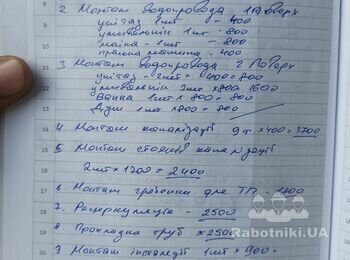 2 Монтаж водопровода 1 поверх
унітаз 1 шт - 400
умивальнік 1 шт - 800
мийка - 1 шт - 800
пральна машина - 400
3 Монтаж водопровода 2 Поверх
унітаз - 2 шт x 400 = 800
умивальнік 2 шт x 800 1600
Ванна 1 шт x 800 = 800
Душ 1 шт x 800 = 800
4 Монтаж каналізації 9 т. x 400 = 3700
5 Монтаж стояків каналізації
2 шт x 1200 = 2400
6 Монтаж гребенки для ТП - 1800
7. Рециркуляція - 2500
8 Прокладка труб x 2500
9 Монтаж інсталяції 1 шт x 900 -
Rabotniki.UA